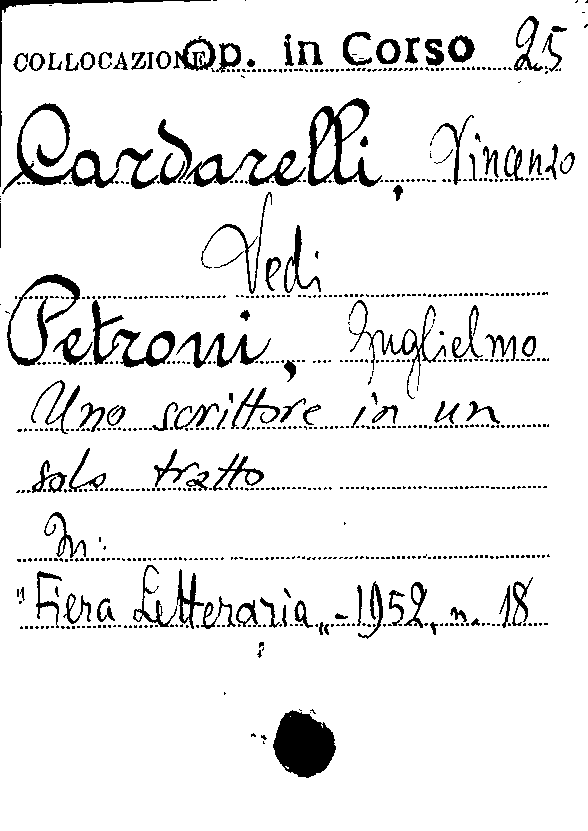 COLLOCAZIONE Op. in Corso 25
Cardarelli, Vincenzo
Vedi
Petroni, Guglielmo
Uno scrittore in un
solo tratto
In:
"Fiera Letteraria„ - 1952, n. 18